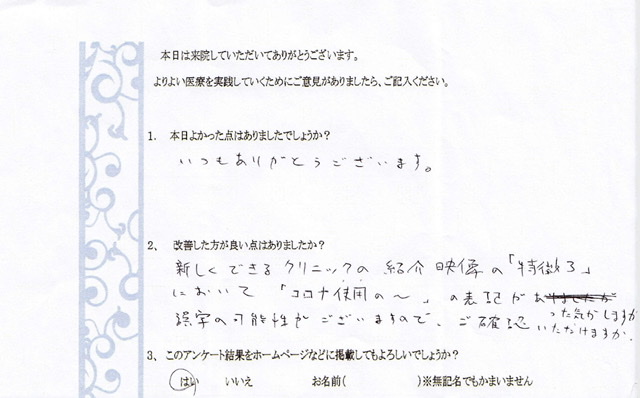 本日は来院していただいてありがとうございます。
よりよい医療を実践していくためにご意見がありましたら、ご記入ください。
1. 本日よかった点はありましたでしょうか?
いつもありがとうございます。
2、 改善した方が良い点はありましたか?
新しくできるクリニックの紹介映像の「特徴3」
において「ココナ使用の〜」の表記があ
った気がしますが
誤字の可能性がございますので、ご確認いただけますか。
3、このアンケート結果をホームページなどに掲載してもよろしいでしょうか?
はい いいえ お名前( )※無記名でもかまいません